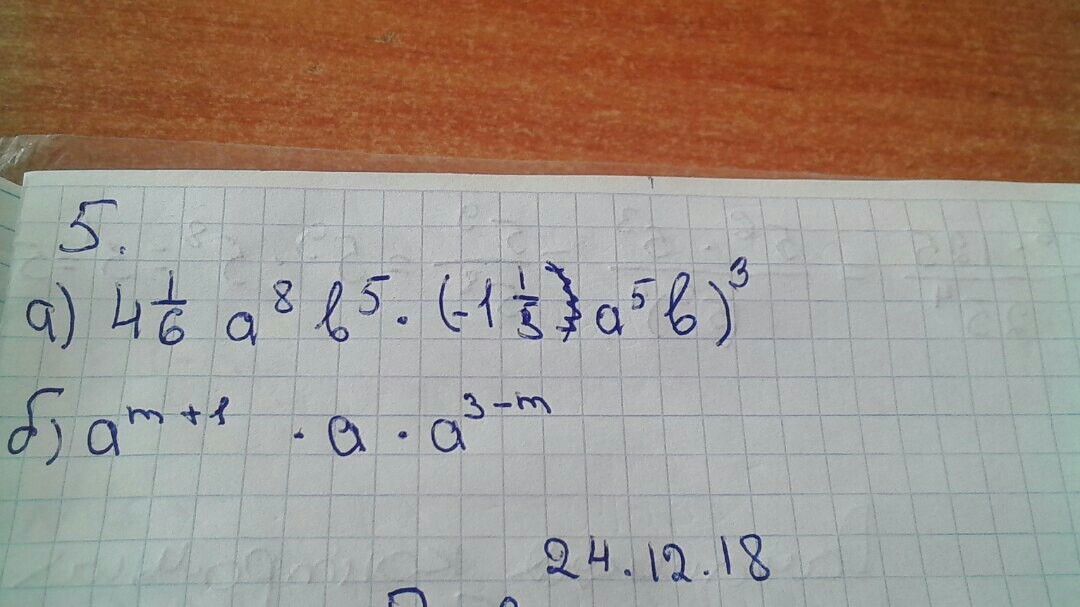 5.
а) 4 1/6 a⁸ b⁵ · (-1 1/5 a⁵ b)³
б) a^(m+1) · a · a^(3-m)
24.12.18